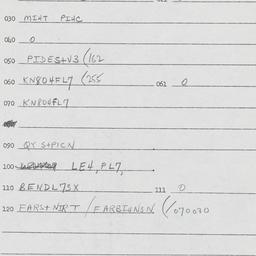 030 MIHT PIHC
040 O
050 PIDES+V3 (162
060 KN8O4FL7 (255 061 O
070 KN8O4FL7
090 QY S+PICN
100 LE4, PL7,
110 BENDL7SX 111 O
120 FARS+NIRT / FARBIGNSN (/070030